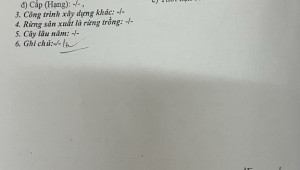 đ) Cấp (Hạng): -/- .
3. Công trình xây dựng khác: -/-
4. Rừng sản xuất là rừng trồng: -/-
5. Cây lâu năm: -/-
6. Ghi chú:-/-